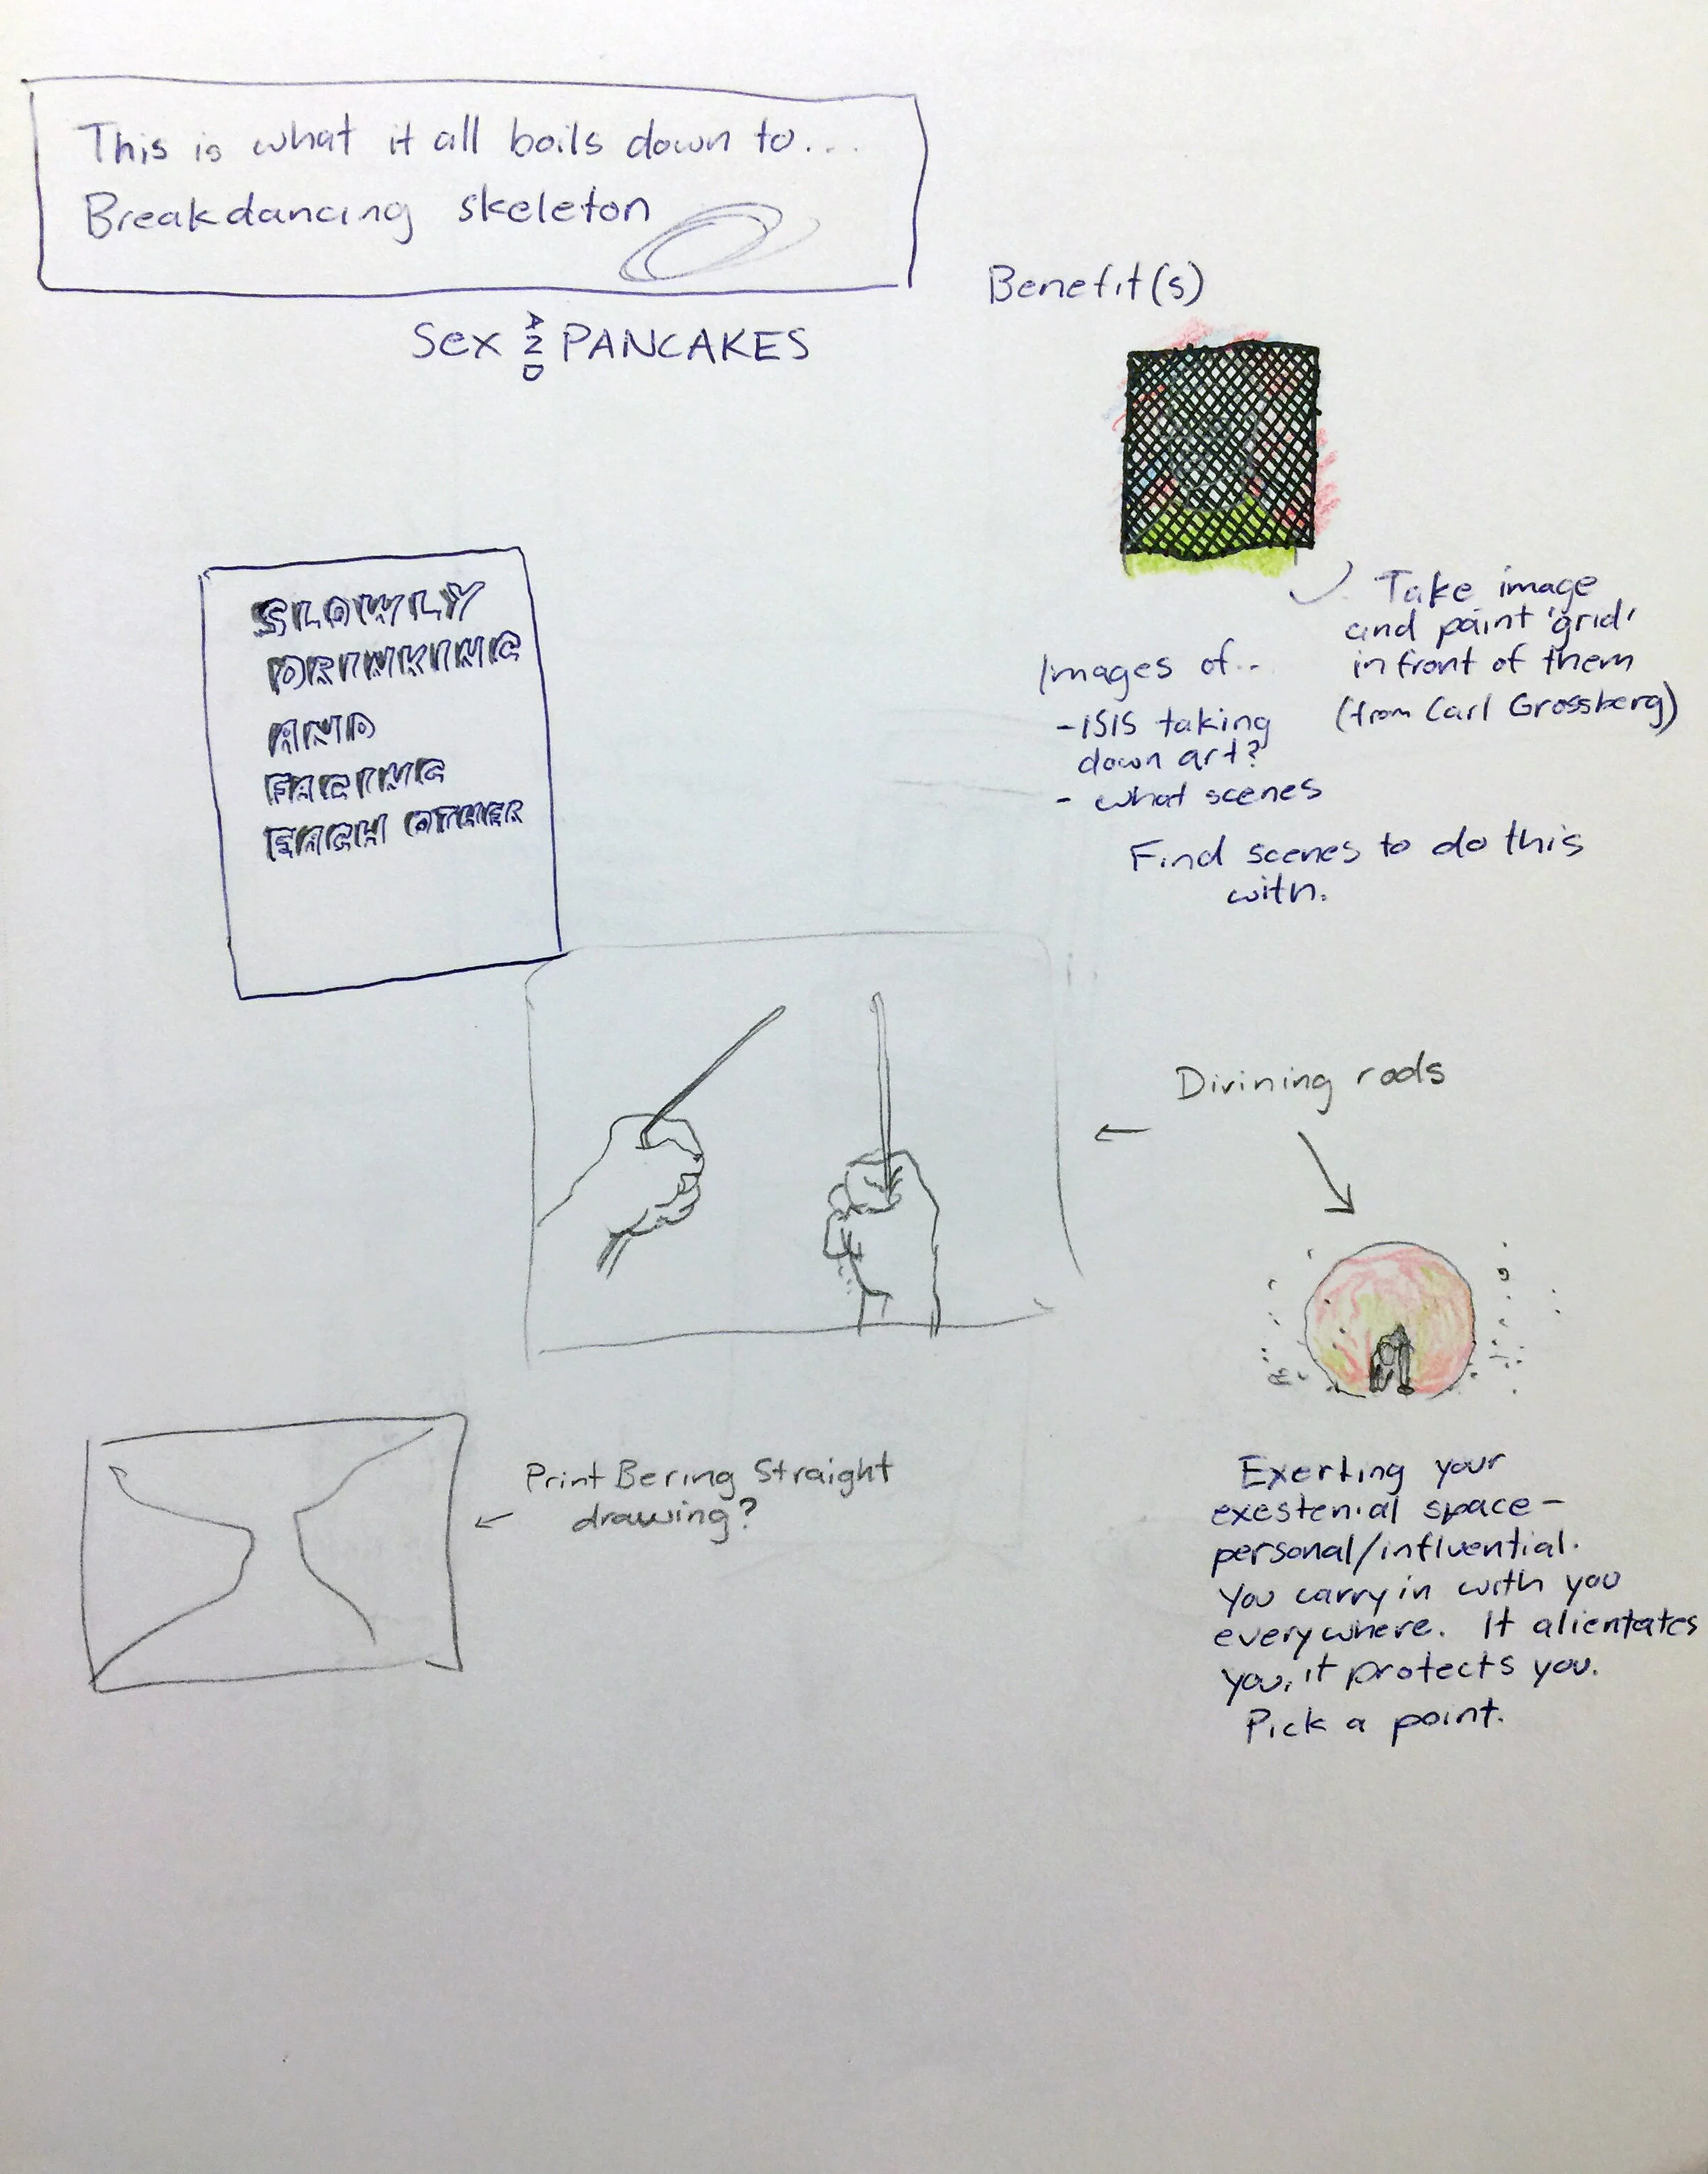 This is what it all boils down to...
Breakdancing skeleton
Sex AND PANCAKES
Benefit(s)
Take image
and paint 'grid'
in front of them
(from Carl Grossberg)
Images of..
-ISIS taking
down art?
- what scenes
Find scenes to do this
with.
SLOWLY
DRINKING
AND
FACING
EACH OTHER
Divining rods
Print Bering Straight
drawing?
Exerting your
exestenial space-
personal/influential.
You carry in with you
everywhere. It alientates
you, it protects you.
Pick a point.